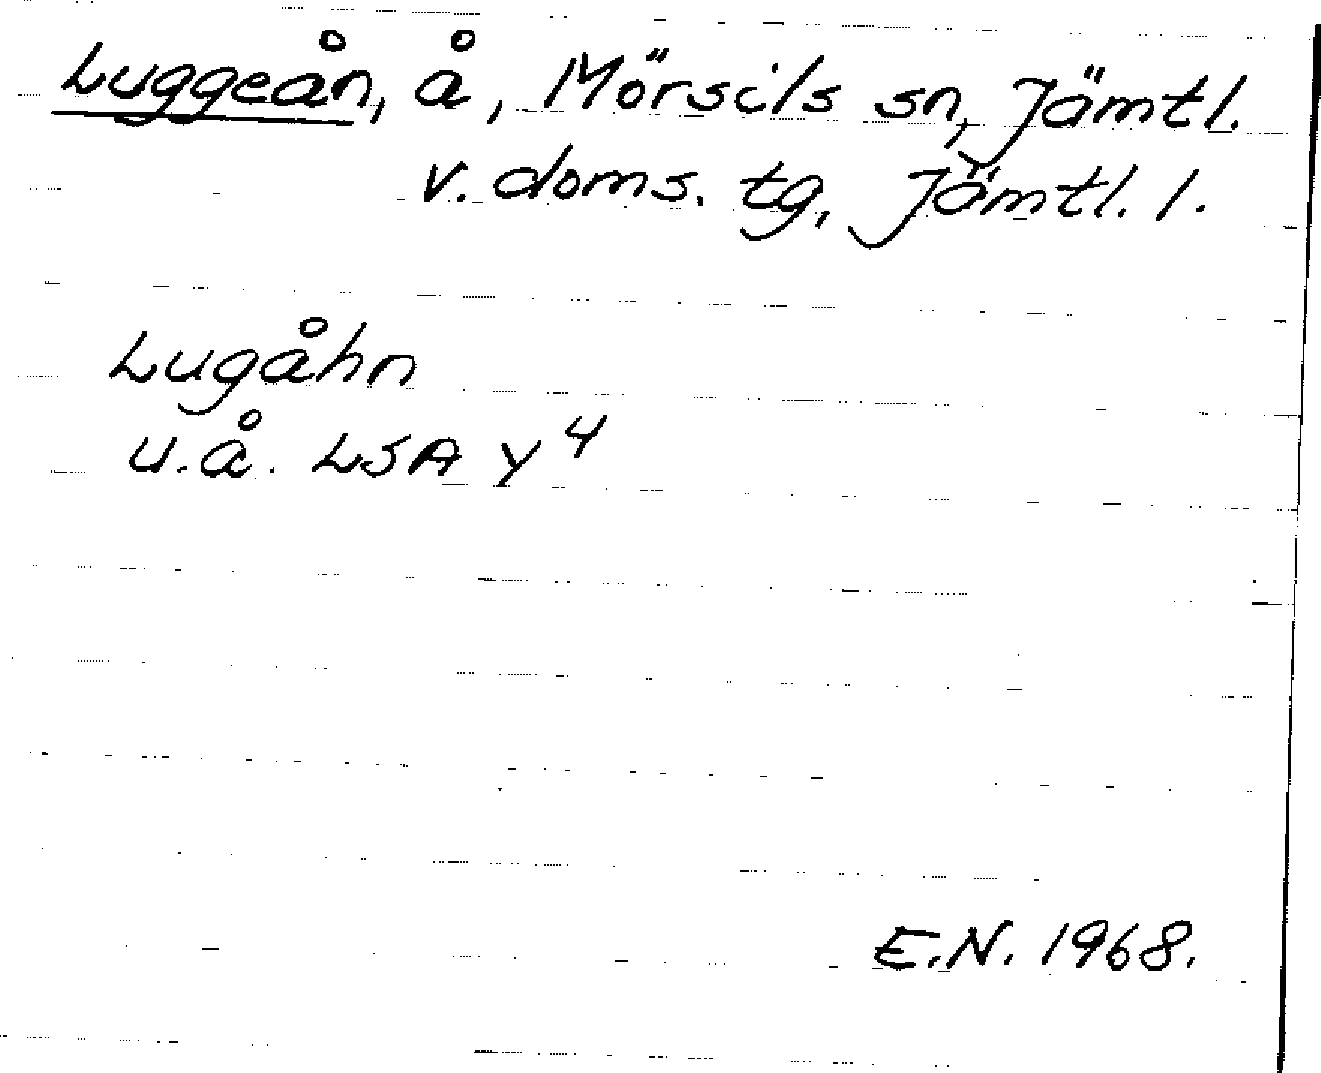 Luggeån, å, Mörsils sn, Jämtl.
v. doms. tg, Jämtl. l.
Lugåhn
u.å. LSA Y4
E.N. 1968.